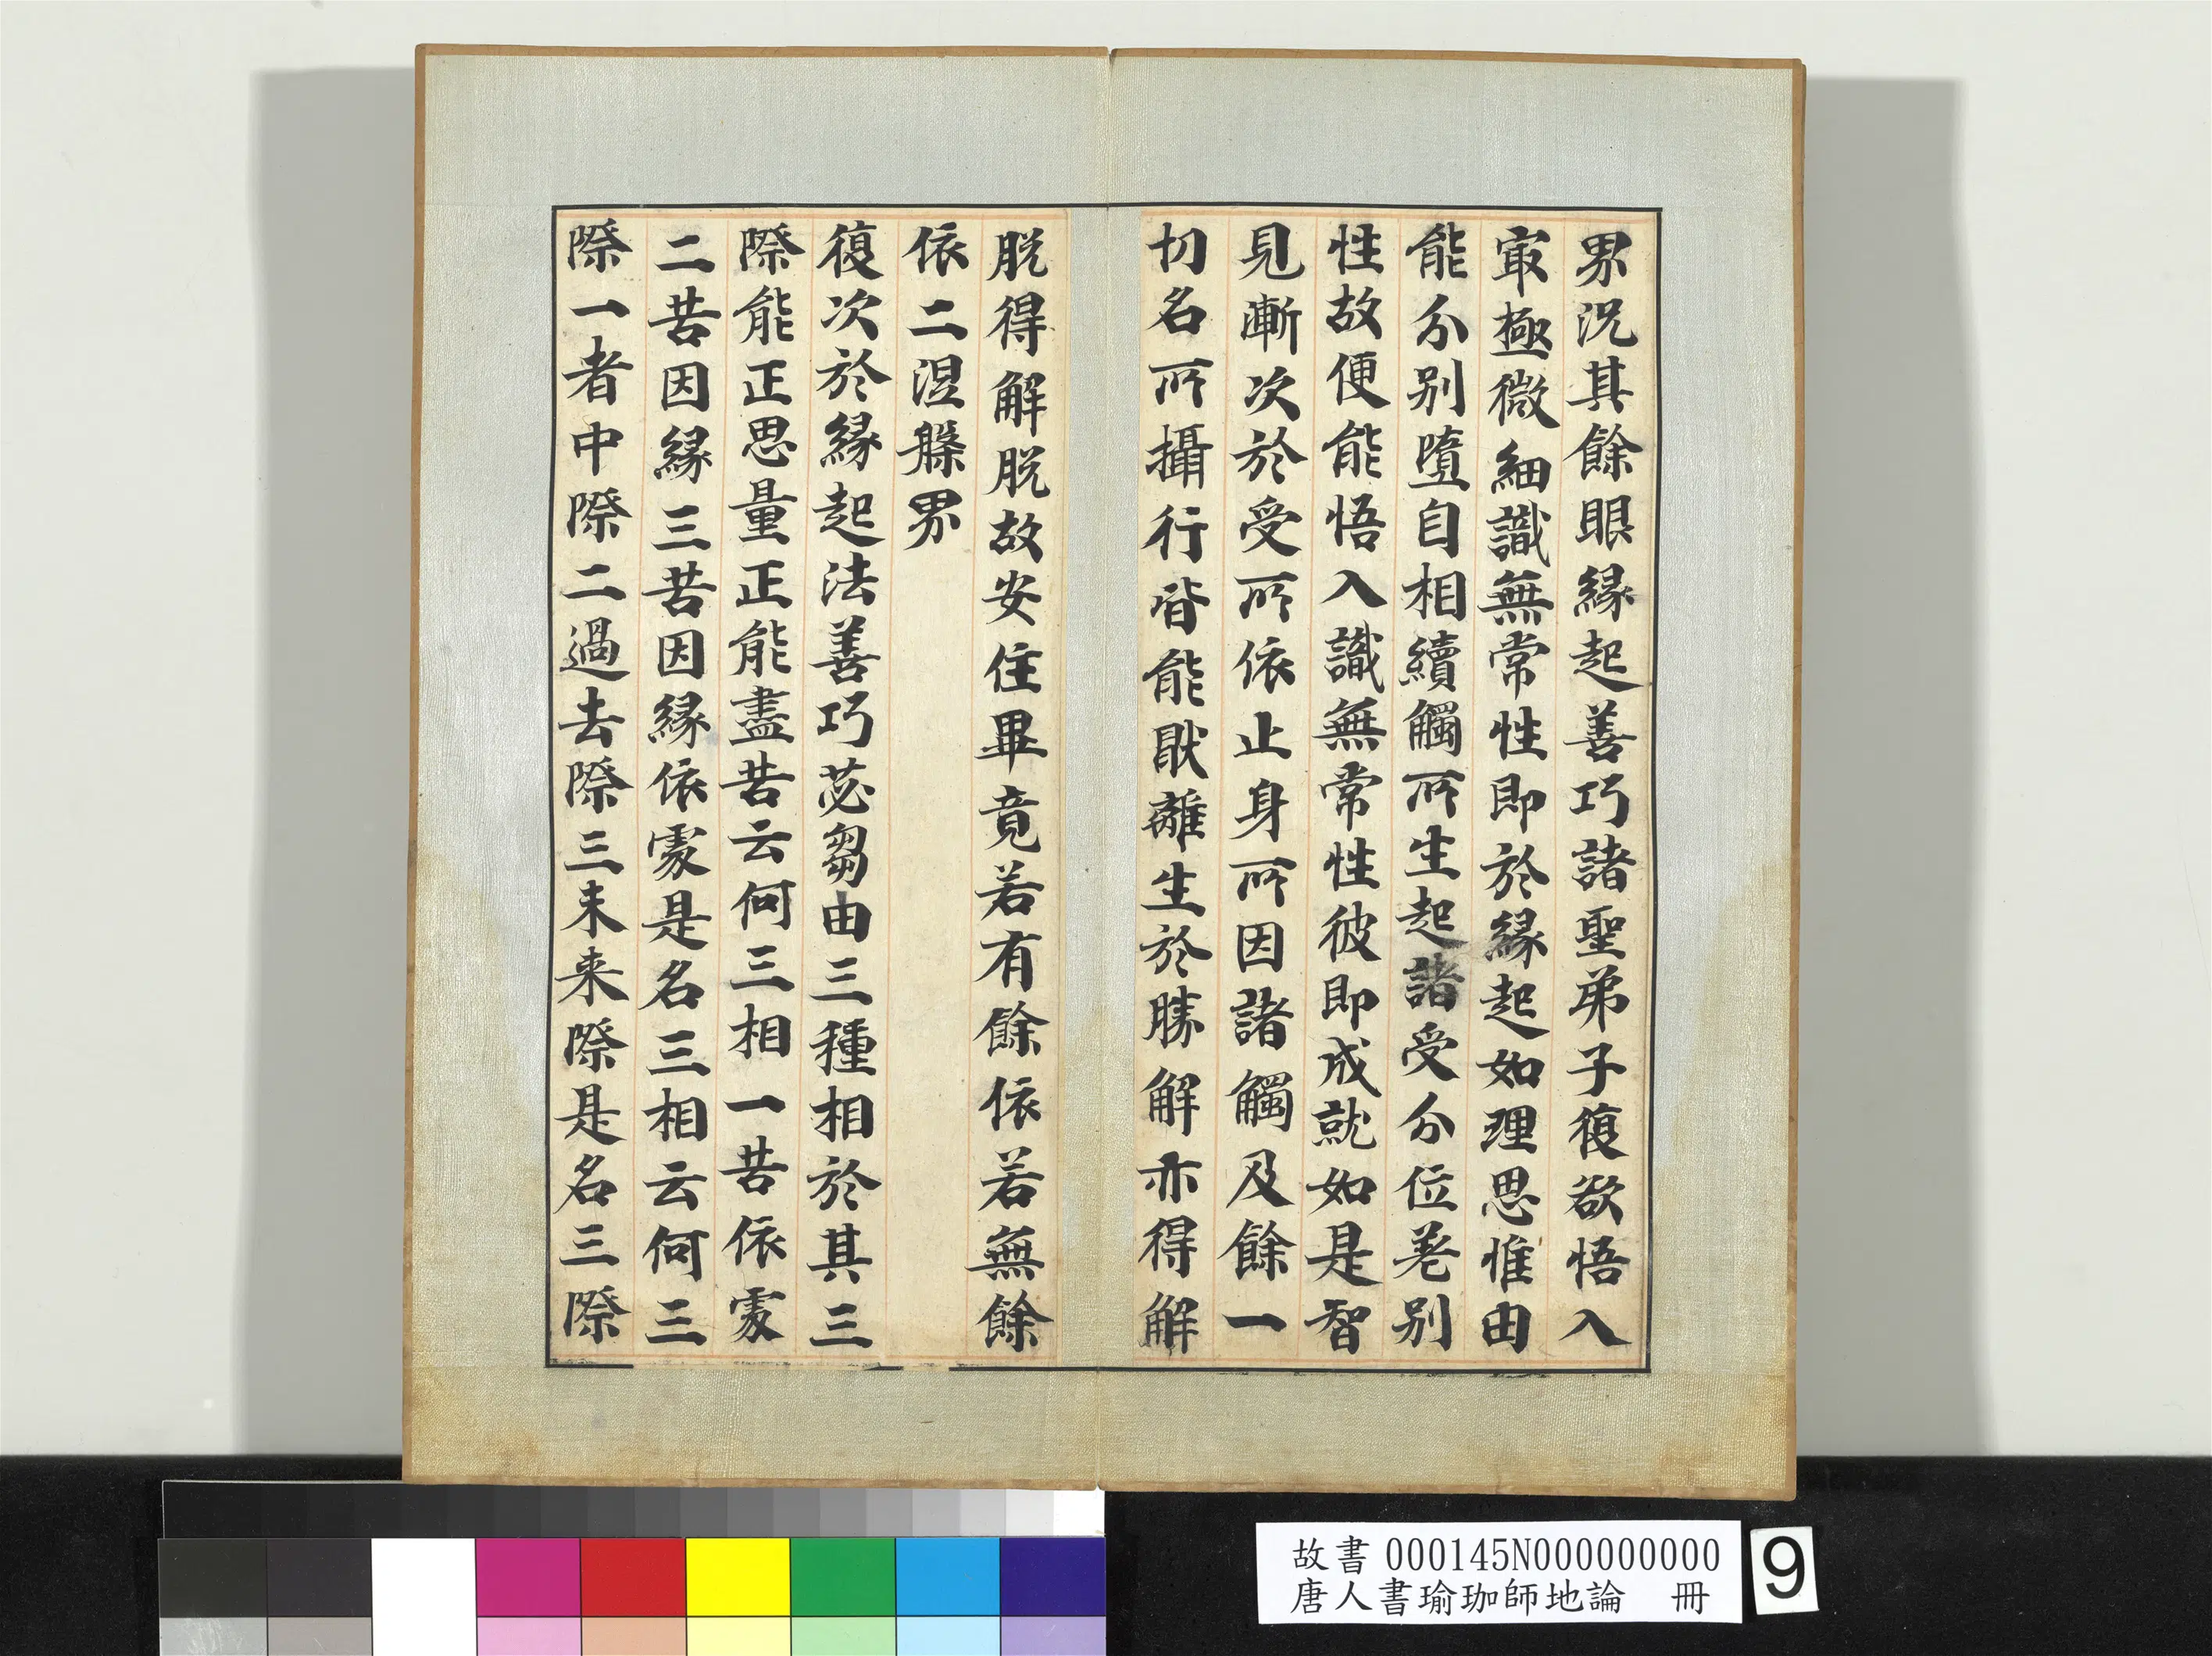 界況其餘眼縁起善巧諸聖弟子復欲悟入
㝡極微細識無常性即於縁起如理思惟由
能分别墮自相續觸所生起諸受分位差别
性故便能悟入識無常性彼即成就如是智
見漸次於受所依止身所因諸觸及餘一
切名所攝行皆能猒離生於勝解亦得解
脱得解脱故安住畢竟若有餘依若無餘
依二涅槃界
復次於縁起法善巧苾芻由三種相於其三
際能正思量正能盡苦云何三相一苦依䖏
二苦因縁三苦因縁依䖏是名三相云何三
際一者中際二過去際三未来際是名三際
故書 000145N000000000
唐人書瑜珈師地論 冊
9